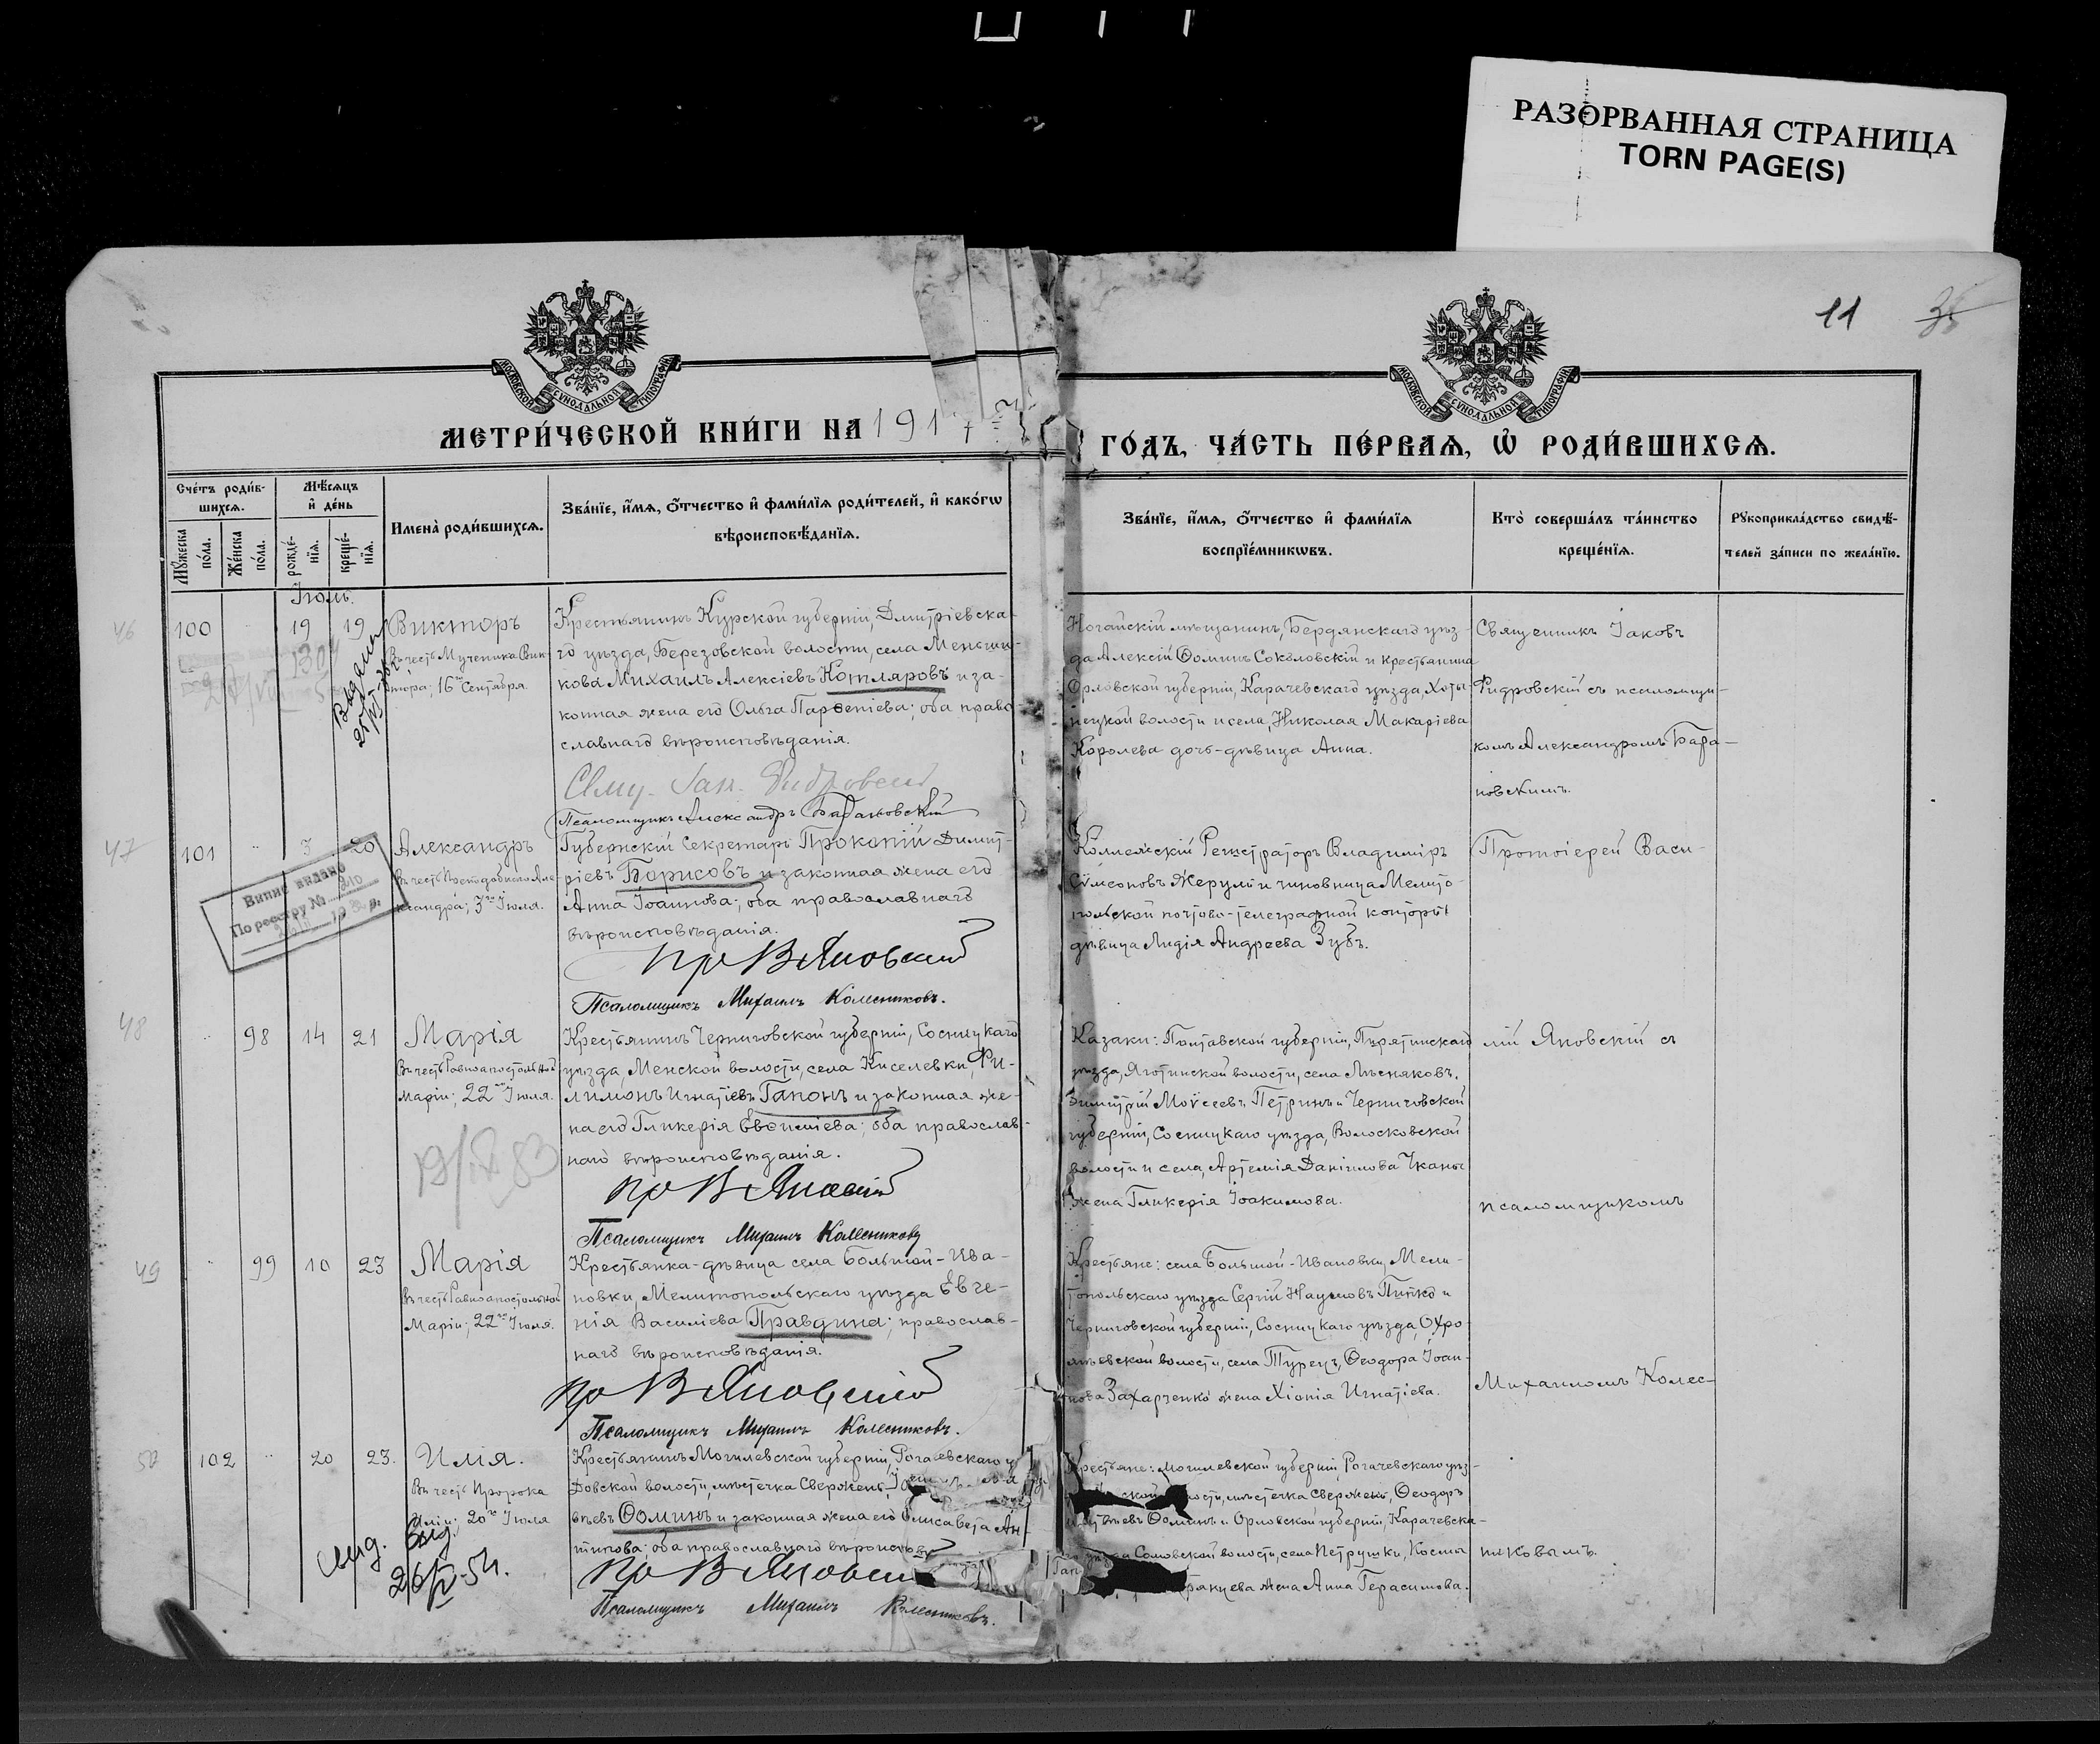 РАЗОРВАННАЯ СТРАНИЦА
TORN PAGE(S)
11
МОСКОВСКОЙ СѴНОДАЛЬНОЙ ТИПОГРАФІИ
МОСКОВСКОЙ СѴНОДАЛЬНОЙ ТИПОГРАФІИ
МЕТРИ́ЧЕСКОЙ КНИ́ГИ НА 1917
ГО́ДЪ, ЧА́СТЬ ПЕ́РВАѦ, Ѡ҆ РОДИ́ВШИХСѦ.
Сче́тъ роди́в-
шихсѧ.
Мꙋ́жеска
по́ла.
Же́нска
по́ла.
Мѣ́сѧцъ
и҆ де́нь
рожде́-
нїѧ.
креще́-
нїѧ.
Имена̀ роди́вшихсѧ.
Зва́нїе, и҆́мѧ, ѻ҆́тчество и҆ фами́лїѧ роди́телей, и҆ како́гѡ
вѣроисповѣ́данїѧ.
Зва́нїе, и҆́мѧ, ѻ҆́тчество и҆ фами́лїѧ
воспрїе́мникѡвъ.
Кто̀ соверша́лъ та́инство
креще́нїѧ.
Рꙋкоприкла́дство свидѣ́-
телей за́писи по жела́нїю.
Іюль.
46
100
19
19
Викторъ
Въ честь Мученика Вик-
тора; 16го Сентября.
Крестьянинъ Курской губерніи, Дмитріевска-
го уѣзда, Березовской волости, села Меньши-
кова Михаилъ Алексіевъ Котляровъ и за-
конная жена его Ольга Парѳеніева; оба право
славнаго вѣроисповѣданія.
Псаломщикъ Александръ Барановскій
Ногайскій мѣщанинъ, Бердянскаго уѣз-
да Алексій Ѳоминъ Соколовскій и крестьянина
Орловской губерніи, Карачевскаго уѣзда, Хоты-
нецкой волости и села, Николая Макаріева
Королева дочь-дѣвица Анна.
Священникъ Іаковъ
Фидровскій съ псаломщи-
комъ Александромъ Бара-
новскимъ.
47
101
3
20
Александръ
Въ честь Преподобнаго Але-
ксандра; 3го Іюля.
Випис видано
По реєстру №
Губернскій Секретарь Прокопій Димит-
ріевъ Борисовъ и законная жена его
Анна Іоаннова; оба православнаго
вѣроисповѣданія.
Пр В Яновский
Псаломщикъ Михаилъ Колесниковъ.
Коллежскій Регистраторъ Владиміръ
Сѵмеоновъ Жерулъ и чиновница Мелито-
польской почтово-телеграфной конторы
дѣвица Лидія Андреева Зубъ.
Протоіерей Васи-
48
98
14
21
Марія
Въ честь Равноапостольной
Маріи; 22го Іюля.
Крестьянинъ Черниговской губерніи, Сосницкаго
уѣзда, Менской волости, села Киселевки, Фи-
лимонъ Игнатіевъ Гапонъ и законная же-
на его Гликерія Евѳиміева; оба православ-
наго вѣроисповѣданія.
Пр В Яновскій
Псаломщикъ Михаилъ Колесниковъ
Казаки: Полтавской губерніи, Пирятинскаго
уѣзда, Яготинской волости, села Лѣсняковъ,
Димитрій Моѵсеевъ Петринъ и Черниговской
губерніи, Сосницкаго уѣзда, Волосковской
волости и села, Артемія Даніилова Чканы
жена Гликерія Іоакимова.
лій Яновскій съ
псаломщикомъ
49
99
10
23
Марія
Въ честь Равноапостольной
Маріи; 22го Іюля.
Крестьянка-дѣвица села Большой-Ива-
новки, Мелитопольскаго уѣзда Евге-
нія Василіева Правдина; православ-
наго вѣроисповѣданія.
Пр В Яновскій
Псаломщикъ Михаилъ Колесниковъ.
Крестьяне: села Большой-Ивановки, Мели-
топольскаго уѣзда Сергій Наумовъ и
Черниговской губерніи, Сосницкаго уѣзда, Охро-
мѣевской волости, села Турецъ, Ѳеодора Іоан-
нова Захарченко жена Хіонія Игнатіева.
Михаиломъ Колес-
50
102
20
23.
Илія.
Въ честь Пророка
Иліи; 20го Іюля
26/V-54.
Крестьянинъ Могилевской губерніи, Рогачевскаго у
Довской волости, мѣстечка Свержень,
вѣевъ Ѳоминъ и законная жена его Елисавета Ан-
типова; оба православнаго вѣроиспов
Пр В Яновски
Псаломщикъ Михаилъ Колесниковъ.
Крестьяне: Могилевской губерніи, Рогачевскаго уѣз-
ской волости, мѣстечка Свержень, Ѳеодоръ
Ѳоминъ и Орловской губерніи, Карачевска-
уѣзда Сомовской волости, села Петрушки, Космы
жена Анна Герасимова.
никовымъ.